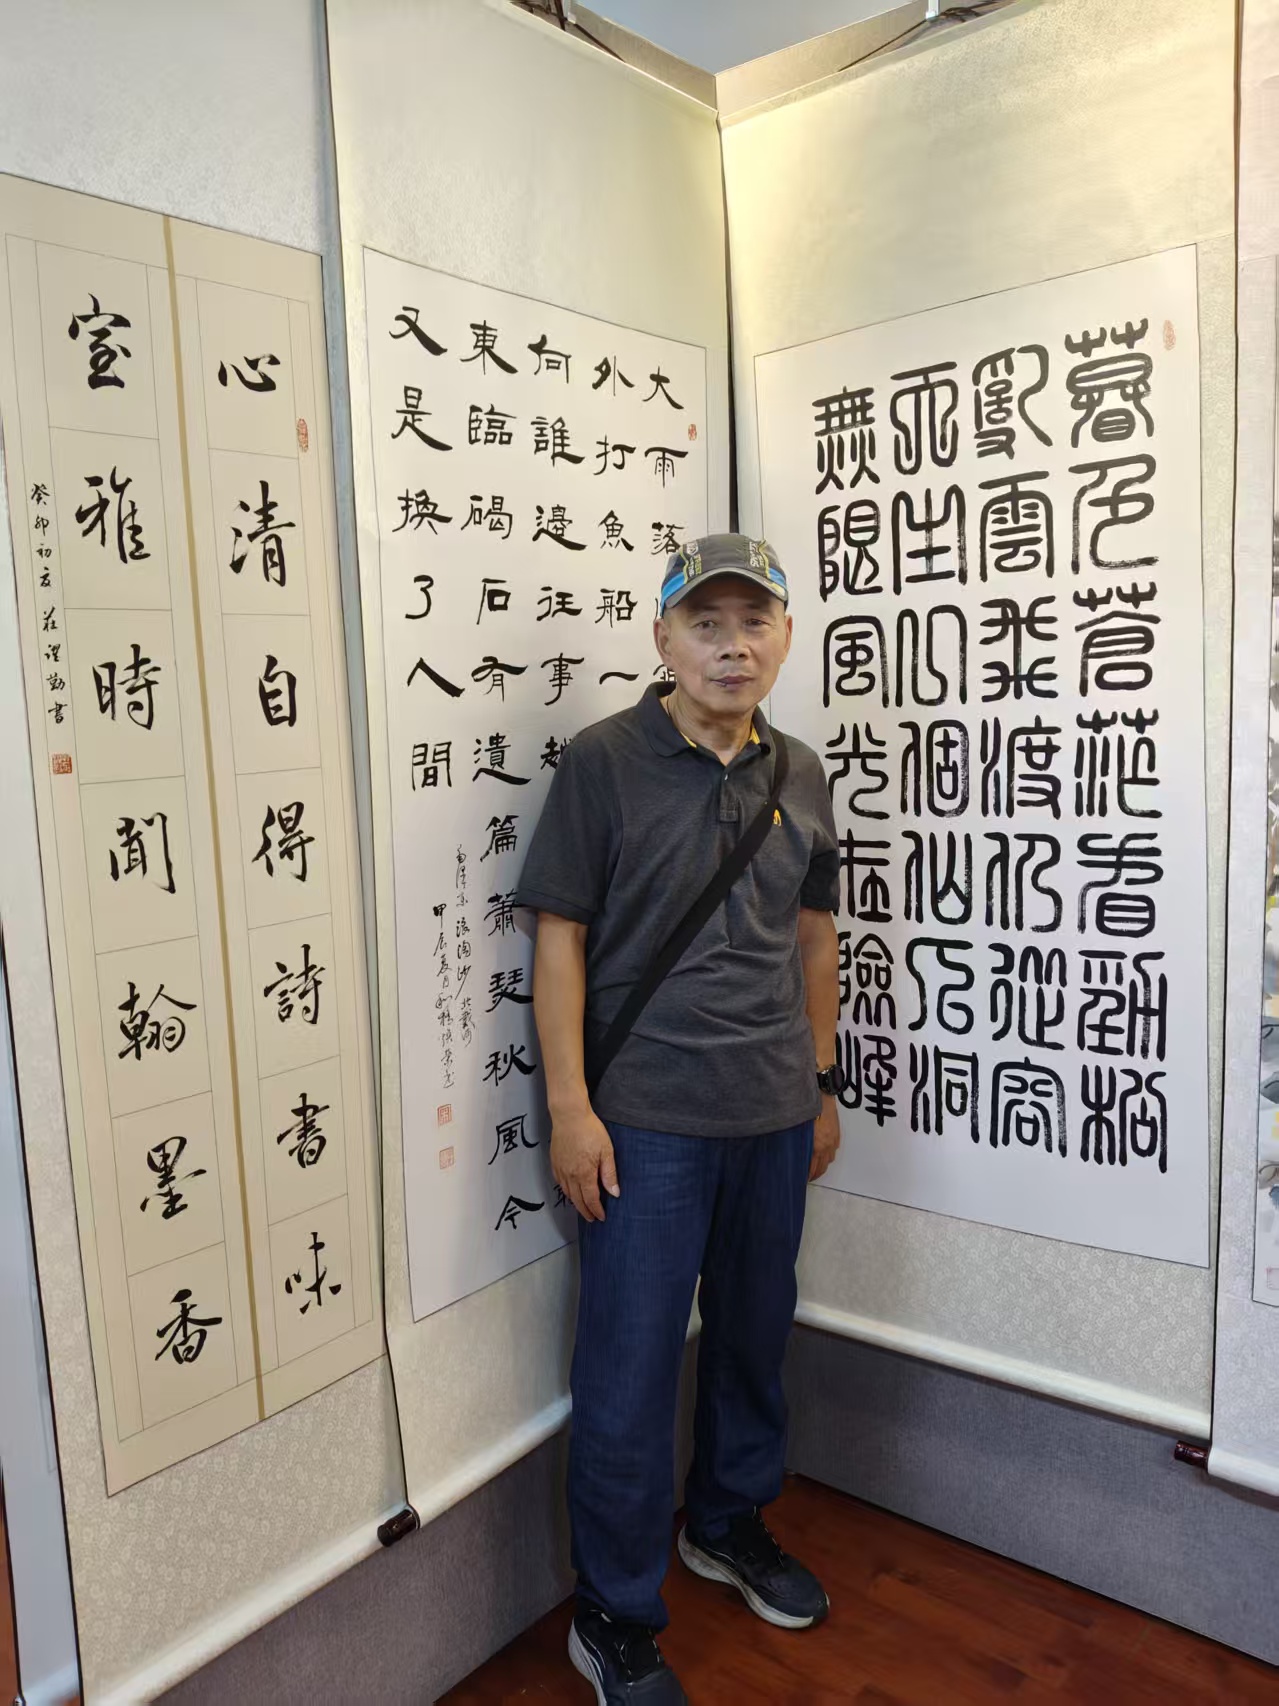 暮色蒼茫看勁松
亂雲飛渡仍從容
天生一個仙人洞
無限風光在險峰
大雨落
外打魚船一
向誰邊往事越
東臨碣石有遺篇蕭瑟秋風今
又是換了人間
毛澤東浪淘沙北戴河
甲辰夏月
心清自得詩書味
室雅時聞翰墨香
癸卯初夏莊禮勤書